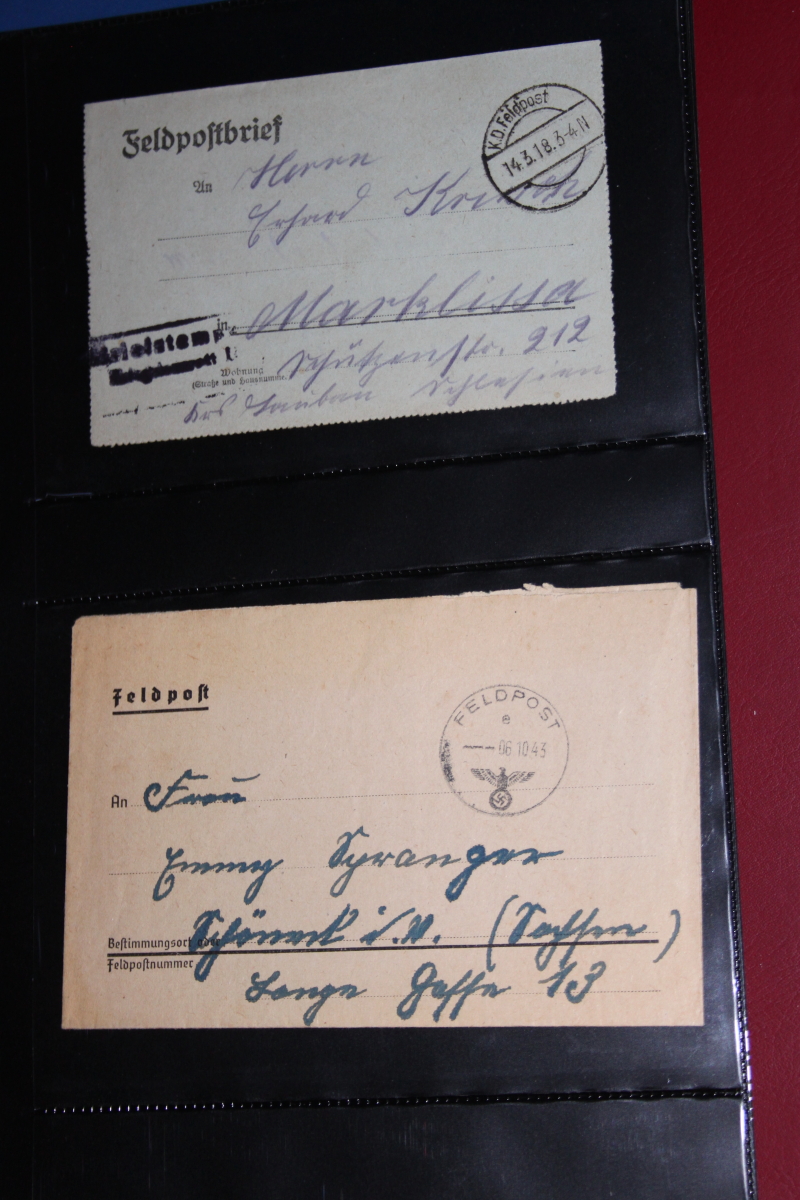 Feldpostbrief
K.D. Feldpost
14.3.18. 3-4 N
An Herrn
Erhard
in Marklissa
Wohnung
(Straße und Hausnummer)
Schützenstr. 212
Krs Lauban Schlesien
Feldpost
FELDPOST
e
06.10.43
An Frau
Emmy Spranger
Bestimmungsort oder
Feldpostnummer
Schöneck i. V. (Sachsen)
Lange Gasse 13